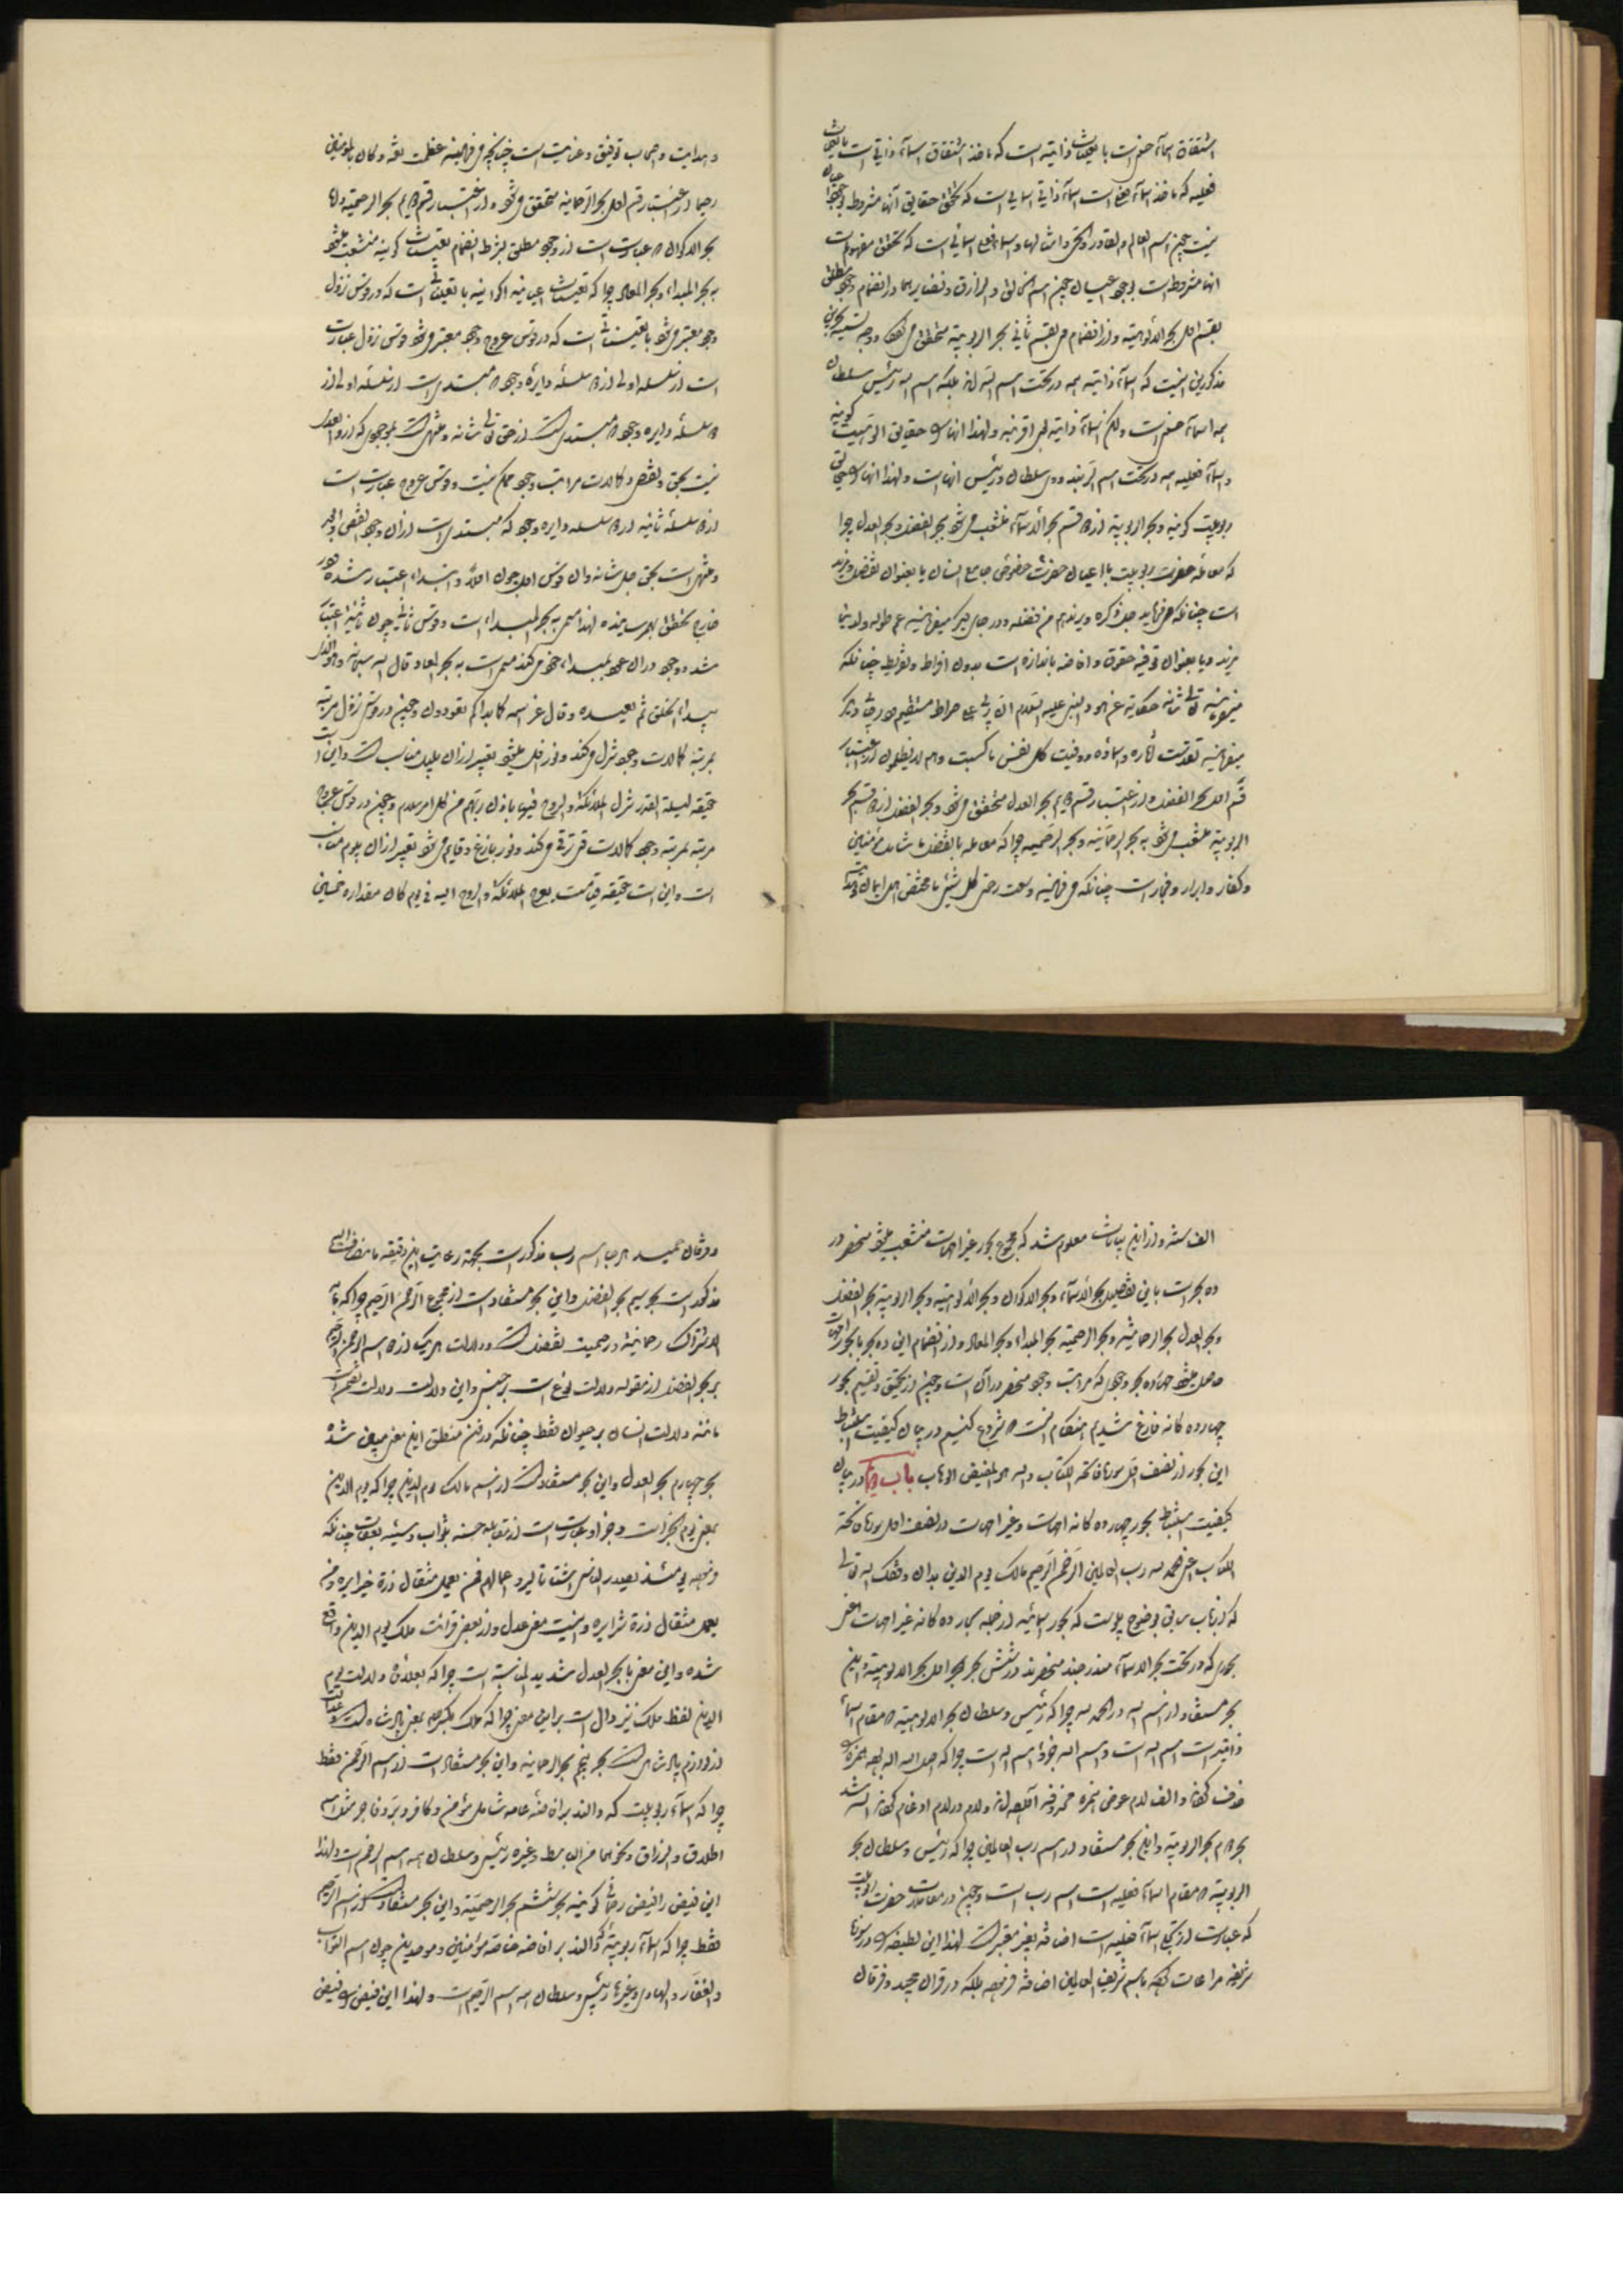 اشتقاق اسماء حسنی است یا تعینات ذاتیه است که ماخذ اشتقاق اسماء ذاتی است یا تعینات
فعلیه که ماخذ اسماء فعلی است اسماء ذاتی اسمایی است که تحقق حقایق آنها مشروط بوجود اعیان
نیست چون اسم العالم و القادر و الحی و امثالها و اسماء فعلی اسمائی است که تحقق مفهومات
انها مشروط است بوجود اعیان چون اسم الخالق و الرازق و نظایرهما و از انضمام وجود مطلق
بقسم اول بحر الالوهیته و از انضمام بقسم ثانی بحر الربوبیته متحقق می شود و وجه تسمیه بحرین
مذکورین اینست که اسماء ذاتیه همه در تحت اسم الله اند بلکه اسم الله رئیس و سلطان
همه اسماء حسنی است و لکن اسماء ذاتیه و لهذا انها را حقایق الوهیت
و اسماء فعلیه همه در تحت اسم الرب اند و سلطان و رئیس انهاست و لهذا انها را حقایق
ربوبیت کونیه و بحر الربوبیته از قسم بحر الاسماء منشعب می شود ببحر الفضل و بحر العدل چرا
که معامله حضرت ربوبیت با اعیان جامع انسان یا بعنوان تفضل و مزید
است چنانکه می فرماید جل ذکره و یزیدهم من فضله و در جای دیگر میفرماید عم طوله ولدینا
مزید و یا بعنوان توفیه حقوق و افاضه باندازه است بدون افراط و تفریط چنانکه
میفرماید تعالی شانه حکایة عن هود النبی علیه السلام ان ربی علی صراط مستقیم و در جای دیگر
میفرماید تقدست آثاره و اسماؤه و وفیت کل نفس ما کسبت و هم لا یظلمون از اعتبار
قسم اول بحر الفضل و از اعتبار قسم دویم بحر العدل متحقق می شود و بحر الفضل از قسم بحر
الربوبیته منشعب می شود به بحر الرحمانیه و بحر الرحیمیه چرا که معامله بالفضل یا شامل مؤمنین
و کفار و ابرار و فجار است چنانکه می فرماید وسعت رحمتی کل شیئ یا مختص اهل ایمان
و هدایت و اصحاب توفیق و عنایت است چنانچه می فرماید عظمت و کان بالمؤمنین
رحیما از اعتبار قسم اول بحر الرحمانیه متحقق می شود و از اعتبار قسم دویم بحر الرحیمیه و اما
بحر الاکوان عبارت است از وجود مطلق بشرط انضمام تعینات کونیه منشعب میشود
به بحر المبداء و بحر المعاد چرا که تعینات اعیانیه اکوانیه یا تعیناتی است که در قوس نزول
وجود معتبر می شود یا تعیناتی است که در قوس عروج وجود معتبر می شود و قوس نزول عبارت
است از سلسله اولی از سلسله دایره وجود
سلسله دایره وجود از حق تعالی شانه و منتهی است بموجودی که از او
نیست بحق و نقص و کمالات مراتب وجود ممکن نیست و قوس عروج عبارت است
از سلسله ثانیه از سلسله دایره وجود که مبتدی است ازان وجود
و منتهی است بحق جل شانه و ان قوس اول چون اولا و ابتداء اعتبار شده
خارج تحقق بهم رسانیده لهذا مسمی به بحر المبداء است و قوس ثانی چون
شد و وجود دران عود بمبداء خود می کند مسمی است به بحر المعاد قال الله سبحانه و هو الذی
یبداء الخلق ثم یعیده و قال عز اسمه کما بداکم تعودون و چون در قوس نزول مرتبه
بمرتبه کمالات وجود تنزل می کند و نور افل میشود تعبیر ازان بلیل مناسب است و این است
حقیقه لیلة القدر تنزل الملائکة و الروح فیها باذن ربهم من کل امر سلام و چون در قوس عروج
مرتبه بمرتبه وجود کمالات ترقی می کند و نور بازغ و قایم می شود تعبیر ازان بیوم مناسب
است و این است حقیقه قیامت یعرج الملائکة و الروح الیه فی یوم کان مقداره خمسین
الف سنه و از این بیانات معلوم شد که مجموع بحور غیر امهات منشعب میشود منحصر در
ده بحر است باین تفصیل بحر الاسماء و بحر الاکوان و بحر الالوهیته و بحر الربوبیته بحر الفضل
و بحر العدل بحر الرحمانیته و بحر الرحیمیته بحر المبداء و بحر المعاد و از انضمام این ده بحر با بحور امهات
حاصل میشود چهارده بحر وجودی که مراتب وجود منحصر درآن است و چون از تحقیق و تقسیم بحور
چهارده کانه فارغ شدیم هنکام انست شروع کنیم در بیان کیفیت استنباط
این بحور از نصف اول سوره فاتحه الکتاب و الله هو المفیض الوهاب باب دویم در بیان
کیفیت استنباط بحور چهارده کانه امهات و غیر امهات از نصف اول سوره فاتحه
الکتاب اعنی الحمد لله رب العالمین الرحمن الرحیم مالک یوم الدین بدان وفقک الله تعالی
که از باب سابق بوضوح پیوست که بحور اسمائیه از جمله بحار ده کانه غیر امهات اعنی
بحوری که در تحت بحر الاسماء مندرجند منحصرند در شش بحر بحر اول بحر الالوهیته و این
بحر مستفاد از اسم الله در الحمد لله چرا که رئیس و سلطان بحر الالوهیته مقام اسماء
ذاتیه است اسم الله است و اسم الله ماخوذ اسم اله است چرا که اصل الله اله بود همزه را
حذف کردند و الف لام عوض همزه محذوفه آوردند و لام در لام ادغام کردند الله شد
بحر دویم بحر الربوبیته و این بحر مستفاد از اسم رب العالمین چرا که رئیس و سلطان بحر
الربوبیته مقام اسماء فعلیه است اسم رب است و چون در معاملات حضرت ربوبیت
که عبارت از تجلی اسماء فعلیه است اضافه بغیر معتبر است لهذا این لطیفه را در سوره
شریفه مراعات کرده باسم شریف العالمین اضافه فرموده بلکه در قران مجید و فرقان
و فرقان حمید هرجا اسم رب مذکور است بجهة رعایت این دقیقه با مضاف الیه
مذکور است بحر سیم بحر الفضل و این بحر مستفاد است از مجموع الرحمن الرحیم چرا که مابه
الاشتراک رحمانیته و رحیمیت تفضل است و دلالت هر یک از دو اسم الرحمن الرحیم
بر بحر الفضل از مقوله دلالت نوع است بر جنس و این دلالت دلالت تضمن است
مانند دلالت انسان بر حیوان فقط چنانکه در فن منطق این معنی مبین شده
بحر چهارم بحر العدل و این بحر مستفاد است از اسم مالک یوم الدین چرا که یوم الدین
بمعنی یوم الجزاست و جزا عبارت است از مقابله حسنه بثواب و سیئه بعقاب چنانکه
فرموده یومئذ یصدر الناس اشتاتا لیروا اعمالهم فمن یعمل مثقال ذرة خیرا یره و من
یعمل مثقال ذرة شرا یره و اینست معنی عدل و در بعض قرائت ملک یوم الدین واقع
شده و این معنی با بحر العدل شدید المناسبة است چرا که بعلاوه دلالت یوم
الدین لفظ ملک نیز دال است براین معنی چرا که ملک بکسر لام بمعنی پادشاه است و عدالت
از لوازم پادشاهی است بحر پنجم بحر الرحمانیه و این بحر مستفاد است از اسم الرحمن فقط
چرا که اسماء ربوبیت که دالند بر افاضه عامه شامل مؤمن و کافر و بر و فاجر مثل اسم
الخلاق و الرزاق و نحوهما من الباسط و غیره رئیس و سلطان همه اسم الرحمن است و لهذا
این فیض را فیض رحمانی کویند بحر ششم بحر الرحیمیته و این بحر مستفاد است از اسم الرحیم
فقط چرا که اسماء ربوبیته که دالند بر افاضه خاصه مؤمنین و موحدین چون اسم التواب
و الغفار و الهادی و غیرها رئیس و سلطان همه اسم الرحیم است و لهذا این فیض را فیض